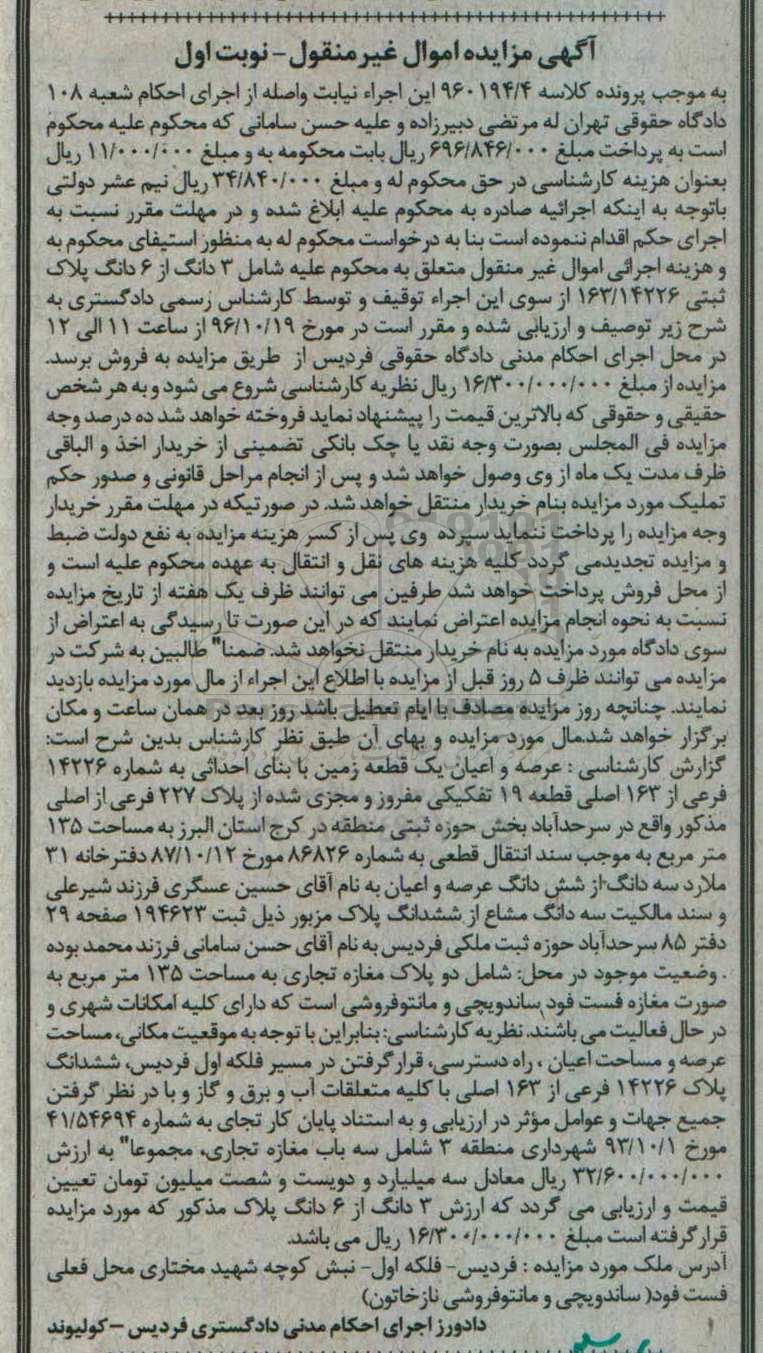 آگهی مزایده اموال غیرمنقول - نوبت اول
به موجب پرونده کلاسه ۹۶۰۱۹۴/۴ این اجراء نیابت واصله از اجرای احکام شعبه ۱۰۸
دادگاه حقوقی تهران له مرتضی دبیرزاده و علیه حسن سامانی که محکوم علیه محکوم
است به پرداخت مبلغ ۶۹۶/۸۴۶/۰۰۰ ریال بابت محکومه به و مبلغ ۱۱/۰۰۰/۰۰۰ ریال
بعنوان هزینه کارشناسی در حق محکوم له و مبلغ ۳۴/۸۴۰/۰۰۰ ریال نیم عشر دولتی
باتوجه به اینکه اجرائیه صادره به محکوم علیه ابلاغ شده و در مهلت مقرر نسبت به
اجرای حکم اقدام ننموده است بنا به درخواست محکوم له به منظور استیفای محکوم به
و هزینه اجرائی اموال غیر منقول متعلق به محکوم علیه شامل ۳ دانگ از ۶ دانگ پلاک
ثبتی ۱۶۳/۱۴۲۲۶ از سوی این اجراء توقیف و توسط کارشناس رسمی دادگستری به
شرح زیر توصیف و ارزیابی شده و مقرر است در مورخ ۹۶/۱۰/۱۹ از ساعت ۱۱ الی ۱۲
در محل اجرای احکام مدنی دادگاه حقوقی فردیس از طریق مزایده به فروش برسد.
مزایده از مبلغ ۱۶/۳۰۰/۰۰۰/۰۰۰ ریال نظریه کارشناسی شروع می شود و به هر شخص
حقیقی و حقوقی که بالاترین قیمت را پیشنهاد نماید فروخته خواهد شد ده درصد وجه
مزایده فی المجلس بصورت وجه نقد یا چک بانکی تضمینی از خریدار اخذ و الباقی
ظرف مدت یک ماه از وی وصول خواهد شد و پس از انجام مراحل قانونی و صدور حکم
تملیک مورد مزایده بنام خریدار منتقل خواهد شد. در صورتیکه در مهلت مقرر خریدار
وجه مزایده را پرداخت ننماید سپرده وی پس از کسر هزینه مزایده به نفع دولت ضبط
و مزایده تجدیدمی گردد کلیه هزینه های نقل و انتقال به عهده محکوم علیه است و
از محل فروش پرداخت خواهد شد طرفین می توانند ظرف یک هفته از تاریخ مزایده
نسبت به نحوه انجام مزایده اعتراض نمایند که در این صورت تا رسیدگی به اعتراض از
سوی دادگاه مورد مزایده به نام خریدار منتقل نخواهد شد. ضمنا" طالبین به شرکت در
مزایده می توانند ظرف ۵ روز قبل از مزایده با اطلاع این اجراء از مال مورد مزایده بازدید
نمایند. چنانچه روز مزایده مصادف با ایام تعطیل باشد روز بعد در همان ساعت و مکان
برگزار خواهد شد.مال مورد مزایده و بهای آن طبق نظر کارشناس بدین شرح است:
گزارش کارشناسی : عرصه و اعیان یک قطعه زمین با بنای احداثی به شماره ۱۴۲۲۶
فرعی از ۱۶۳ اصلی قطعه ۱۹ تفکیکی مفروز و مجزی شده از پلاک ۲۲۷ فرعی از اصلی
مذکور واقع در سرحدآباد بخش حوزه ثبتی منطقه در کرج استان البرز به مساحت ۱۳۵
متر مربع به موجب سند انتقال قطعی به شماره ۸۶۸۲۶ مورخ ۸۷/۱۰/۱۲ دفترخانه ۳۱
ملارد سه دانگ از شش دانگ عرصه و اعیان به نام آقای حسین عسگری فرزند شیرعلی
و سند مالکیت سه دانگ مشاع از ششدانگ پلاک مزبور ذیل ثبت ۱۹۴۶۲۳ صفحه ۲۹
دفتر ۸۵ سرحدآباد حوزه ثبت ملکی فردیس به نام آقای حسن سامانی فرزند محمد بوده
. وضعیت موجود در محل: شامل دو پلاک مغازه تجاری به مساحت ۱۳۵ متر مربع به
صورت مغازه فست فود ساندویچی و مانتوفروشی است که دارای کلیه امکانات شهری و
در حال فعالیت می باشند. نظریه کارشناسی: بنابراین با توجه به موقعیت مکانی، مساحت
عرصه و مساحت اعیان ، راه دسترسی، قرار گرفتن در مسیر فلکه اول فردیس، ششدانگ
پلاک ۱۴۲۲۶ فرعی از ۱۶۳ اصلی با کلیه متعلقات آب و برق و گاز و با در نظر گرفتن
جمیع جهات و عوامل مؤثر در ارزیابی و به استناد پایان کار تجای به شماره ۴۱/۵۴۶۹۴
مورخ ۹۳/۱۰/۱ شهرداری منطقه ۳ شامل سه باب مغازه تجاری، مجموعا" به ارزش
۳۲/۶۰۰/۰۰۰/۰۰۰ ریال معادل سه میلیارد و دویست و شصت میلیون تومان تعیین
قیمت و ارزیابی می گردد که ارزش ۳ دانگ از ۶ دانگ پلاک مذکور که مورد مزایده
قرار گرفته است مبلغ ۱۶/۳۰۰/۰۰۰/۰۰۰ ریال می باشد.
آدرس ملک مورد مزایده : فردیس- فلکه اول- نبش کوچه شهید مختاری محل فعلی
فست فود( ساندویچی و مانتوفروشی نازخاتون)
دادورز اجرای احکام مدنی دادگستری فردیس - کولیوند